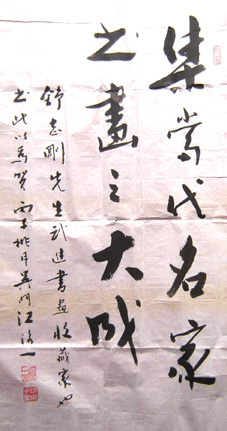 集當代名家
书畫之大成
舒志剛先生武進書畫收藏家也
书此以為賀 丙子桃月吳門江洛一